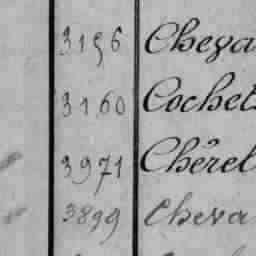 3156 Cheva
3160 Cochet
3971 Chêrel
3899 Cheva